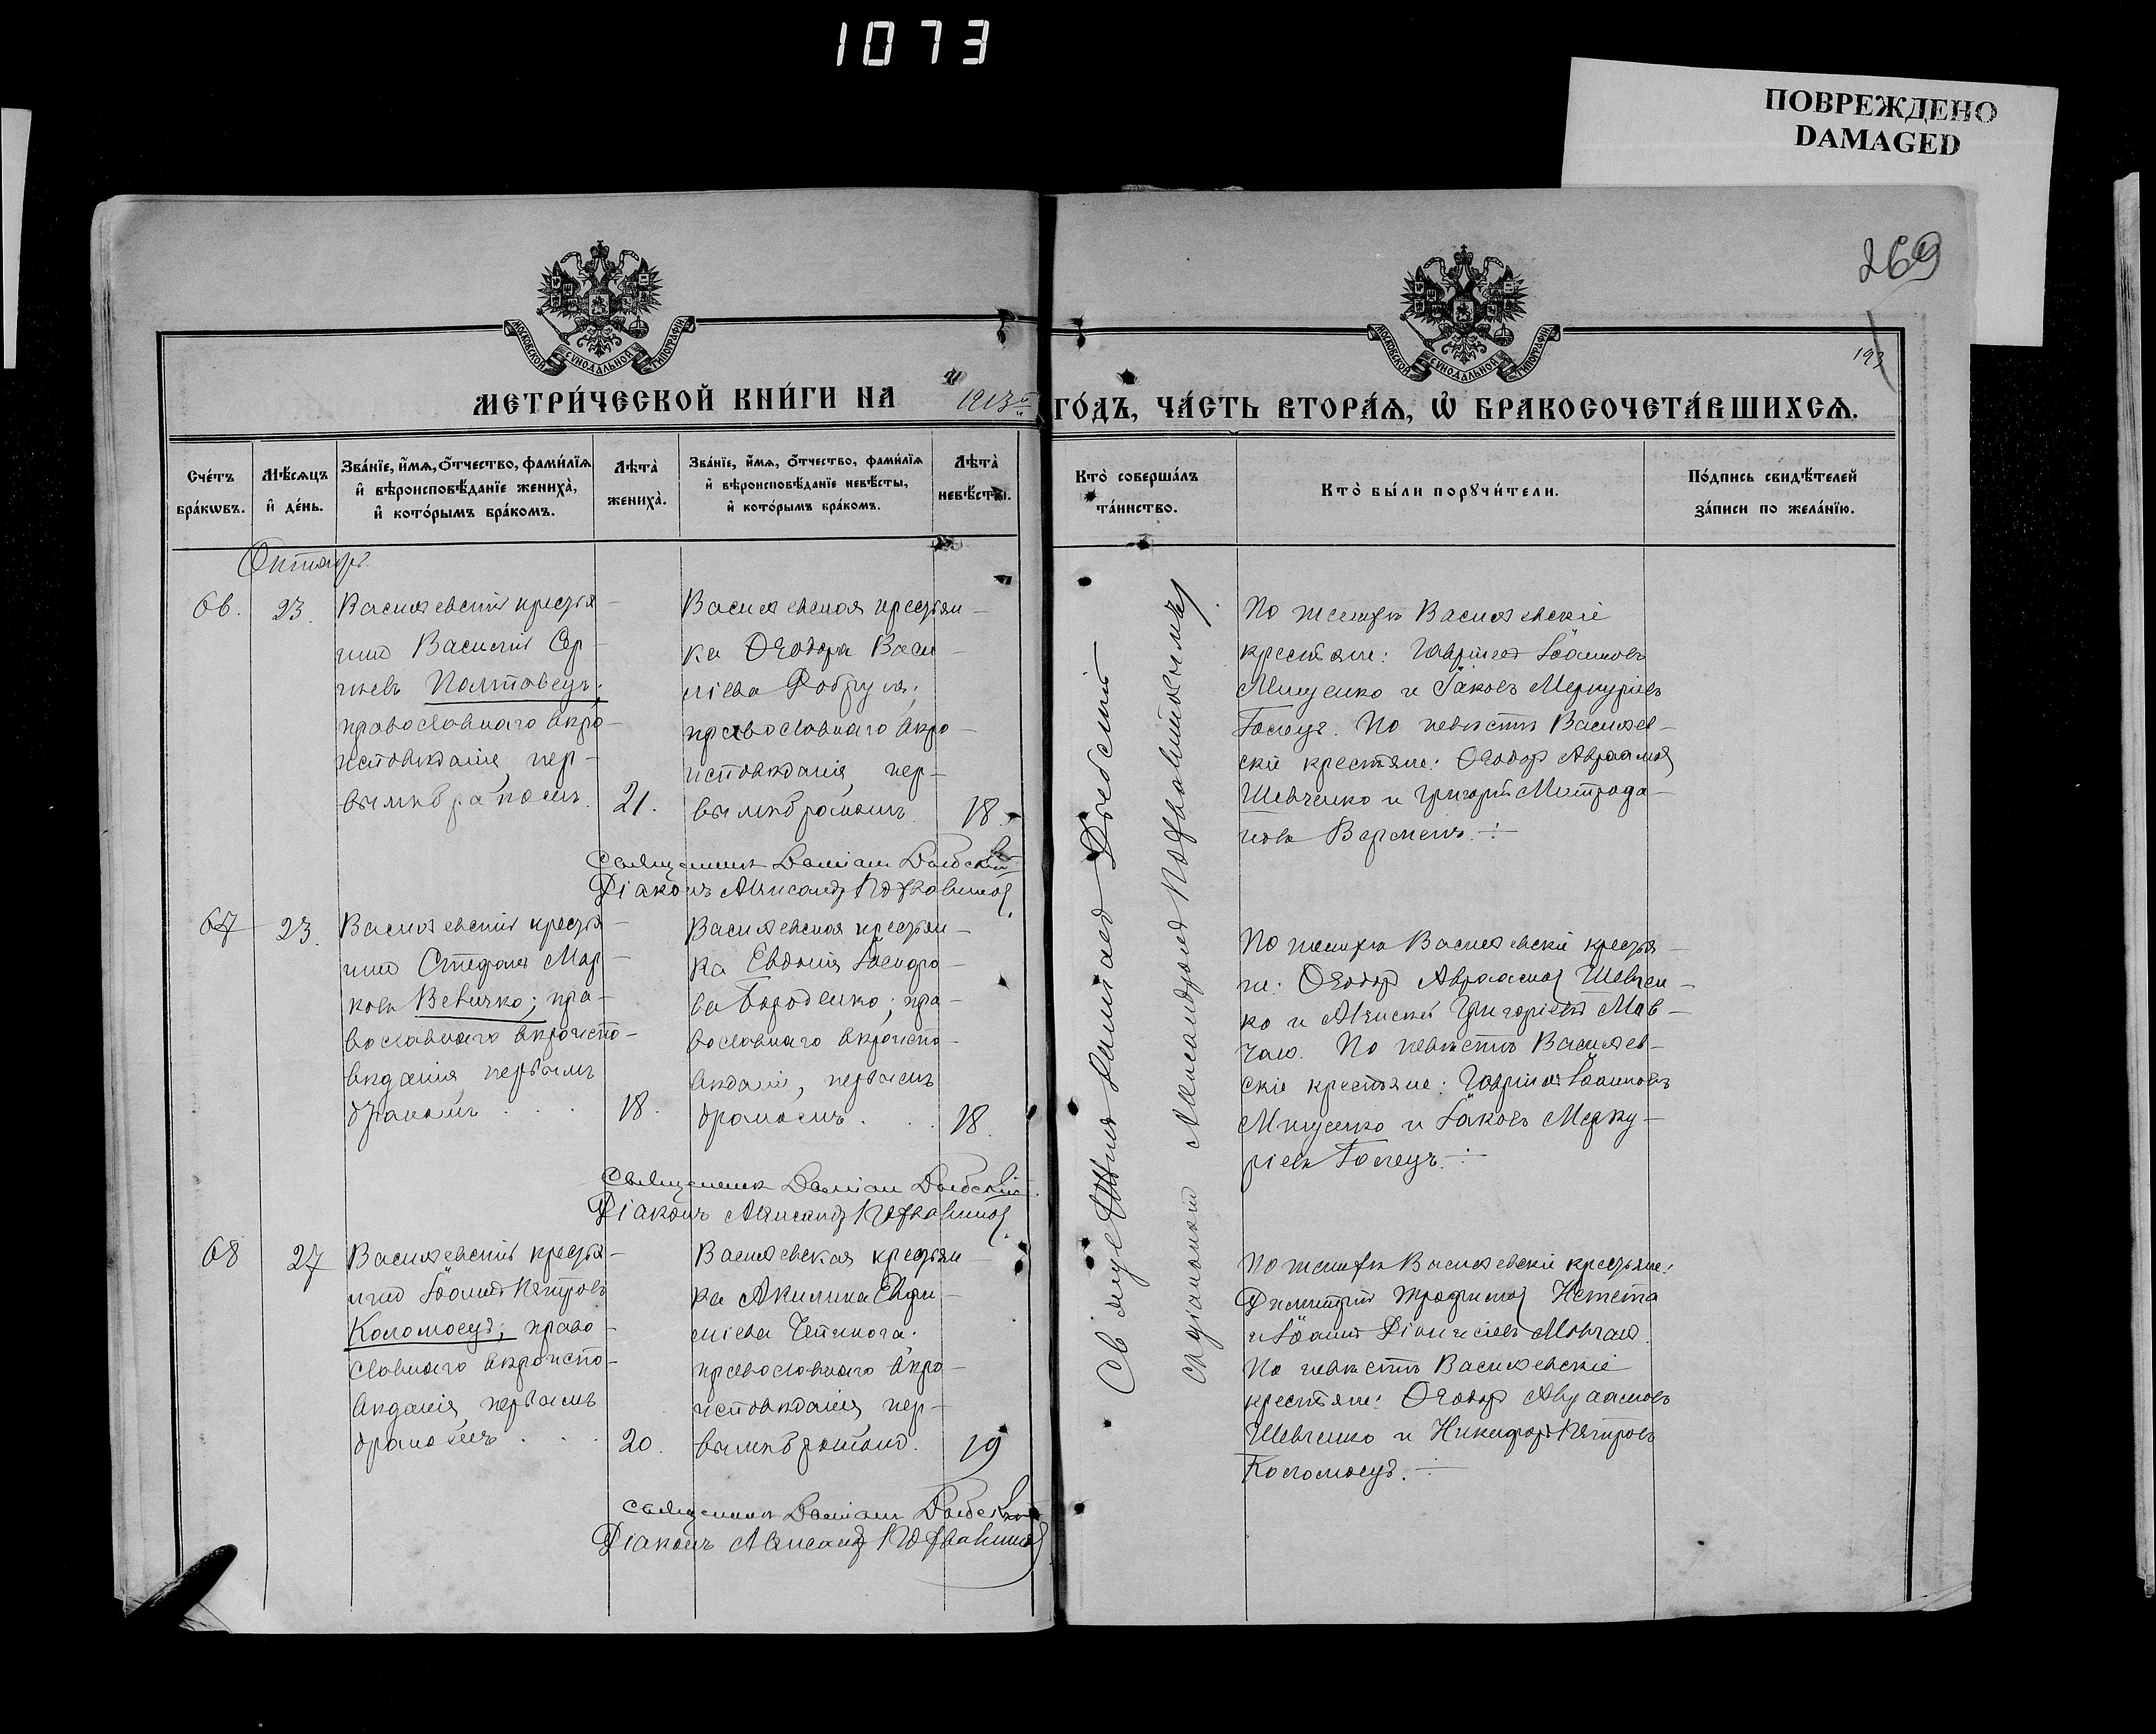 1073
ПОВРЕЖДЕНО
DAMAGED
269
193
МОСКОВСКОЙ СѴНОДАЛЬНОЙ ТИПОГРАФІИ
МОСКОВСКОЙ СѴНОДАЛЬНОЙ ТИПОГРАФІИ
МЕТРИ́ЧЕСКОЙ КНИ́ГИ НА 1913й ГО́ДЪ, ЧА́СТЬ ВТОРА́Ѧ, Ѽ БРАКОСОЧЕТА́ВШИХСѦ.
Сче́тъ бра́кѡвъ.
Мѣ́сѧцъ и҆ де́нь.
Зва́нїе, и҆́мѧ, ѻ҆́тчество, фами́лїѧ и҆ вѣроисповѣ́данїе жениха̀, и҆ кото́рымъ бра́комъ.
Лѣта̀ жениха̀.
Зва́нїе, и҆́мѧ, ѻ҆́тчество, фами́лїѧ и҆ вѣроисповѣ́данїе невѣ́сты, и҆ кото́рымъ бра́комъ.
Лѣта̀ невѣ́сты.
Кто̀ соверша́лъ та́инство.
Кто̀ бы́ли порꙋчи́тели.
По́дпись свидѣ́телей за́писи по жела́нїю.
Октябрь
66.
23.
Василевскій крестья-
нинъ Василій Сер-
гіевъ Полтавецъ;
православнаго вѣро-
исповѣданія, пер-
вымъ бракомъ.
21.
Василевская крестьян-
ка Ѳеодора Васи-
ліева
православнаго вѣро-
исповѣданія, пер-
вымъ бракомъ.
18.
По женихѣ Василевскіе
крестьяне: Гавріилъ Іоанновъ
Мищенко и Іаковъ Меркуріевъ
Голецъ. По невѣстѣ Василев-
скіе крестьяне: Ѳеодоръ Авраамов
Шевченко и Григорій Митрофа-
новъ
Священникъ Даміанъ Дзюбскій
Діаконъ Александр
67
23.
Василевскій крестья-
нинъ Стефанъ Мар-
ковъ Величко; пра-
вославнаго вѣроиспо-
вѣданія, первымъ
бракомъ . . .
18.
Василевская крестьян-
ка Евдокія Ісидоро-
ва Бороденко; пра-
вославнаго вѣроиспо-
вѣданія, первымъ
бракомъ . . .
18.
По женихѣ Василевскіе крестья-
не: Ѳеодоръ Авраамов Шевчен-
ко и Алексѣй Григоріевъ Мов-
чанъ. По невѣстѣ Василев-
скіе крестьяне: Гавріилъ Іоанновъ
Мищенко и Іаковъ Мерку-
ріевъ Голецъ.
Священникъ Даміанъ Дзюбскій.
Діаконъ Александр
68
27
Василевскій крестья-
нинъ Іоаннъ Петровъ
Коломоецъ; право-
славнаго вѣроиспо-
вѣданія, первымъ
бракомъ . . .
20.
Василевская крестьян-
ка Акилина Евфи-
міева
православнаго вѣро-
исповѣданія, пер-
вымъ бракомъ.
19
По женихѣ Василевскіе крестьяне:
Димитрій Трофимов
и Іоаннъ Діонисіевъ Мовчанъ.
По невѣстѣ Василевскіе
крестьяне: Ѳеодоръ Авраамовъ
Шевченко и Никифоръ Петровъ
Коломоецъ.
Священникъ Даміанъ Дзюбскій
Діаконъ Александр
Священникъ Даміанъ Дзюбскій
съ діакономъ Александромъ